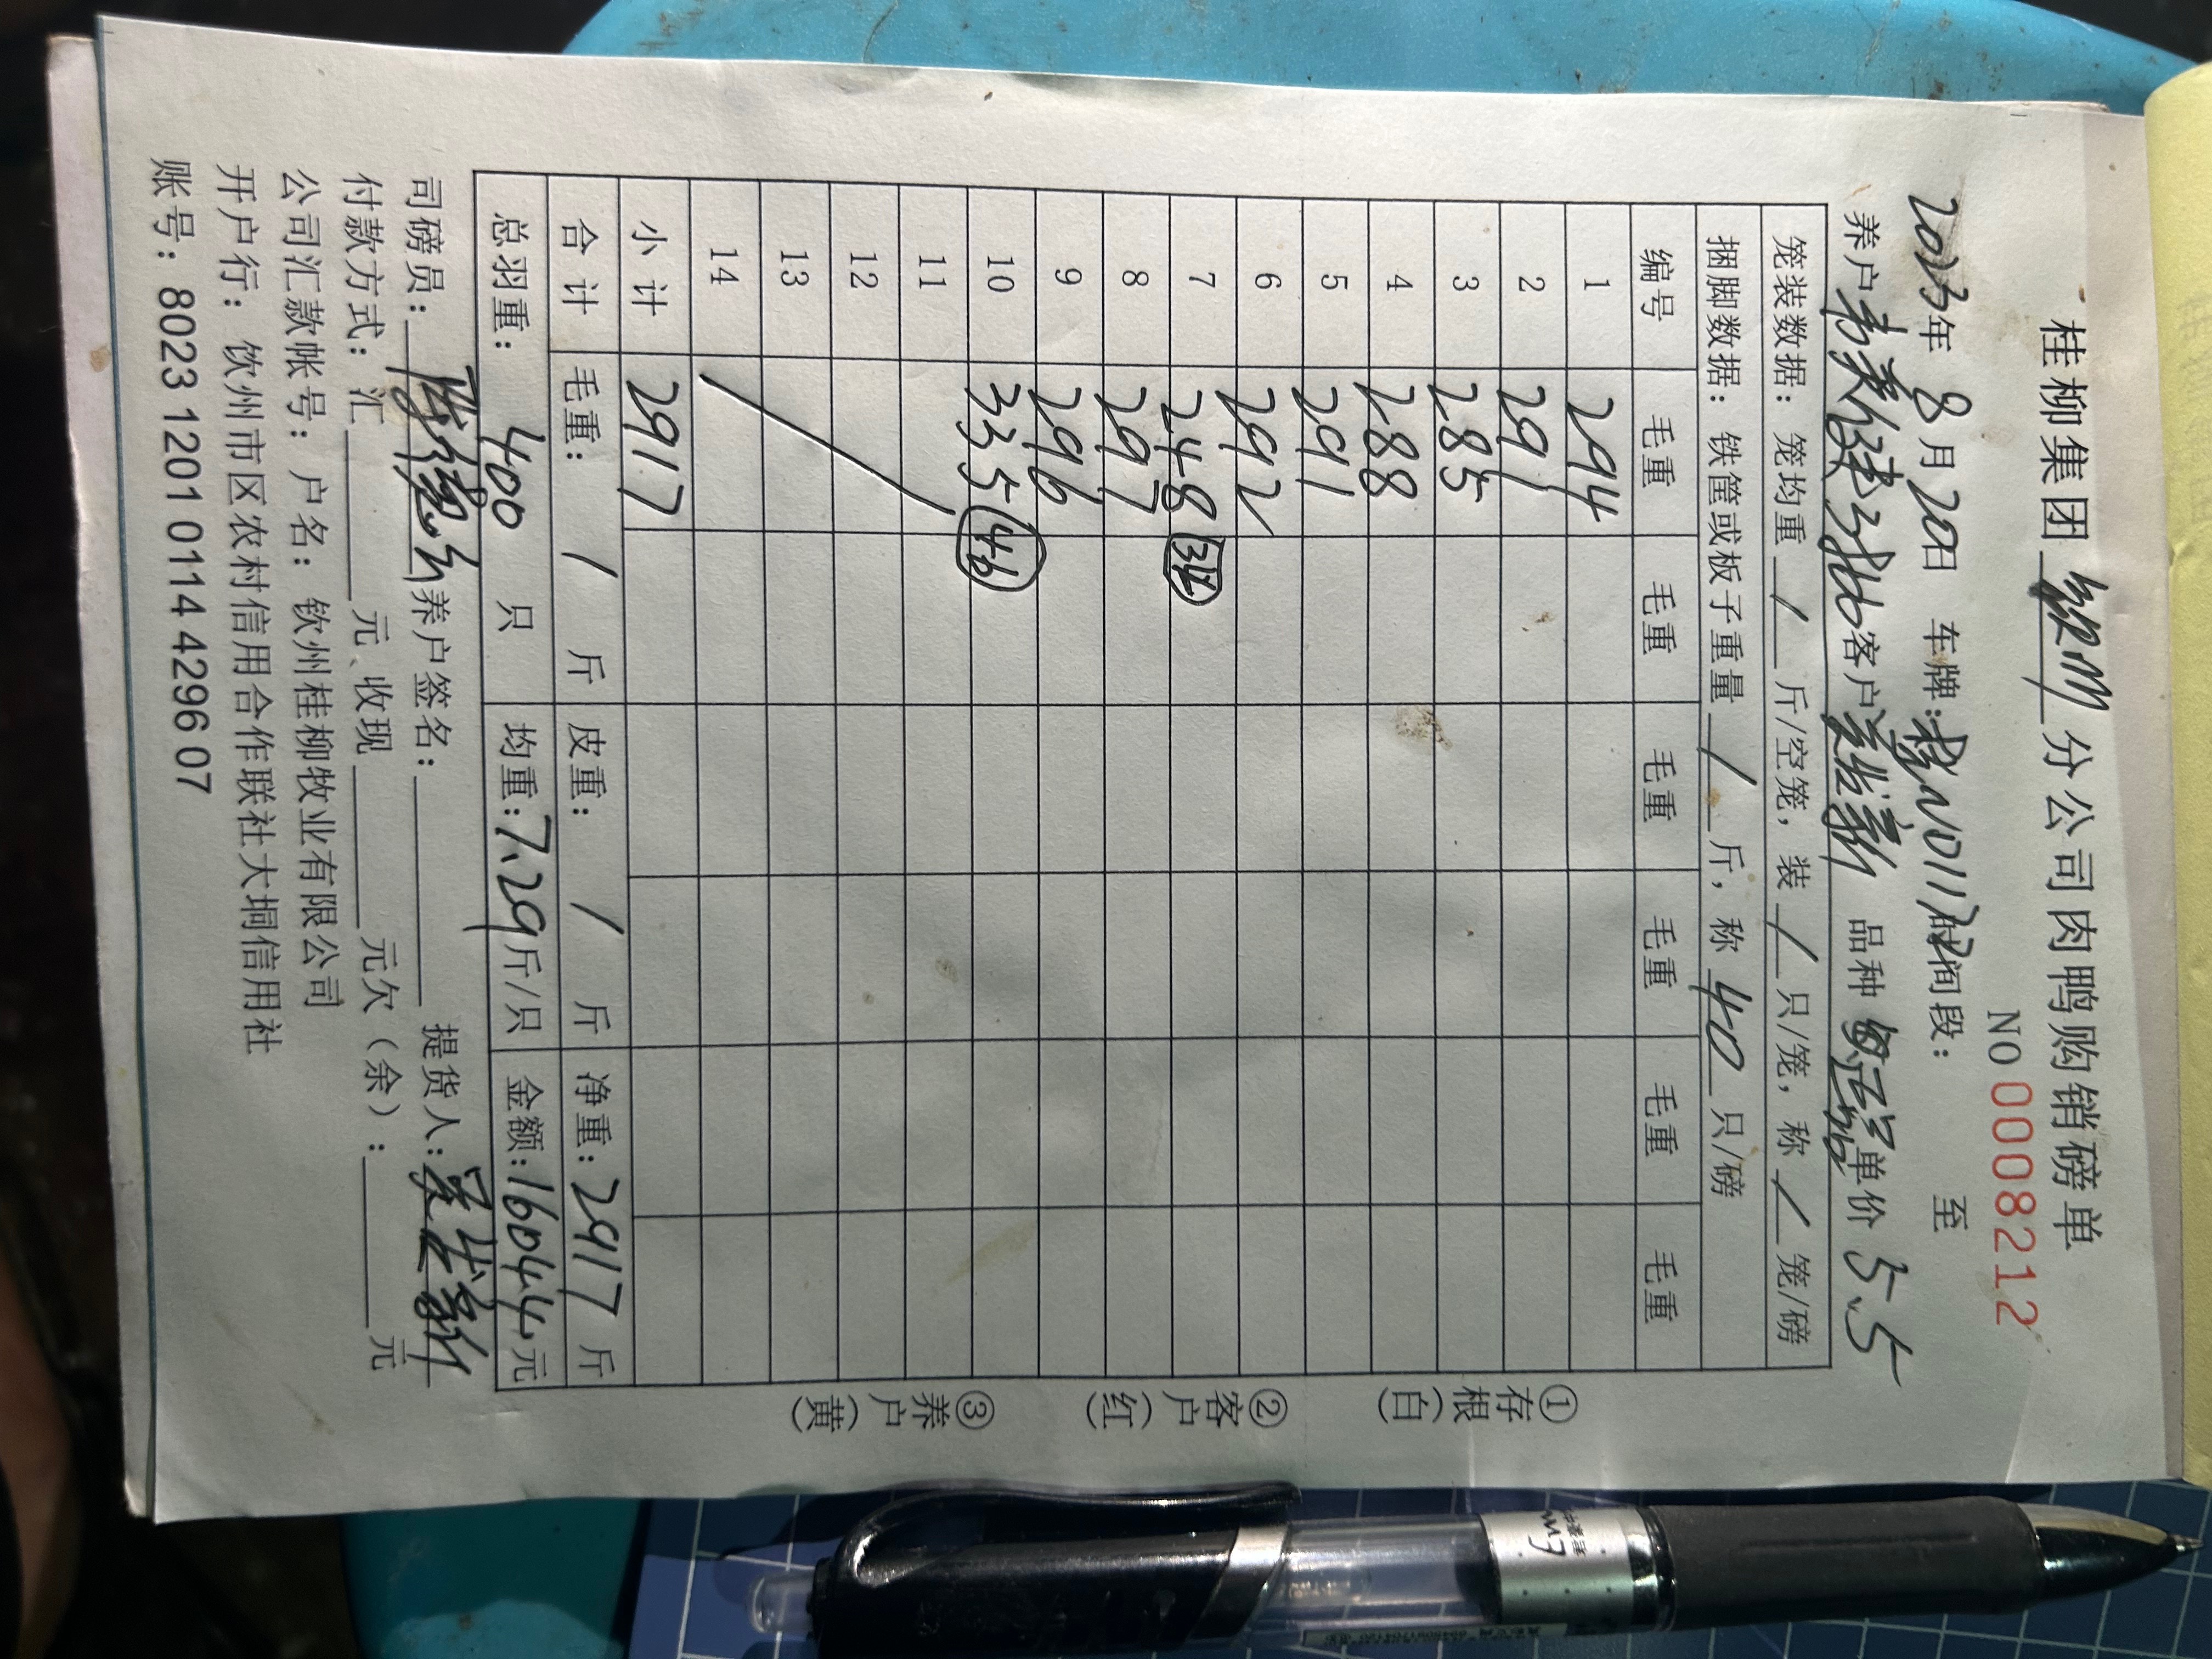 桂柳集团 分公司肉鸭购销磅单
NO 0008212
2023年 8月20日 车牌: N011 时间段： 至
养户 客户 品种 单价 5.5
笼装数据：笼均重 / 斤/空笼，装 / 只/笼，称 / 笼/磅
捆脚数据：铁筐或板子重量 / 斤，称 40 只/磅
编号 毛重 毛重 毛重 毛重 毛重 毛重
1 294
2 291
3 285
4 288
5 291
6 292
7 248 34
8 297
9 296
10 335 46
11
12
13
14
小计 2917
合计 毛重： / 斤 皮重： / 斤 净重：2917 斤
总羽重： 400 只 均重：7.29斤/只 金额：16044元
司磅员： 养户签名： 提货人：
付款方式：汇 元、收现 元欠（余）： 元
公司汇款帐号：户名：钦州桂柳牧业有限公司
开户行：钦州市区农村信用合作联社大垌信用社
账号：8023 1201 0114 4296 07
①存根（白） ②客户（红） ③养户（黄）